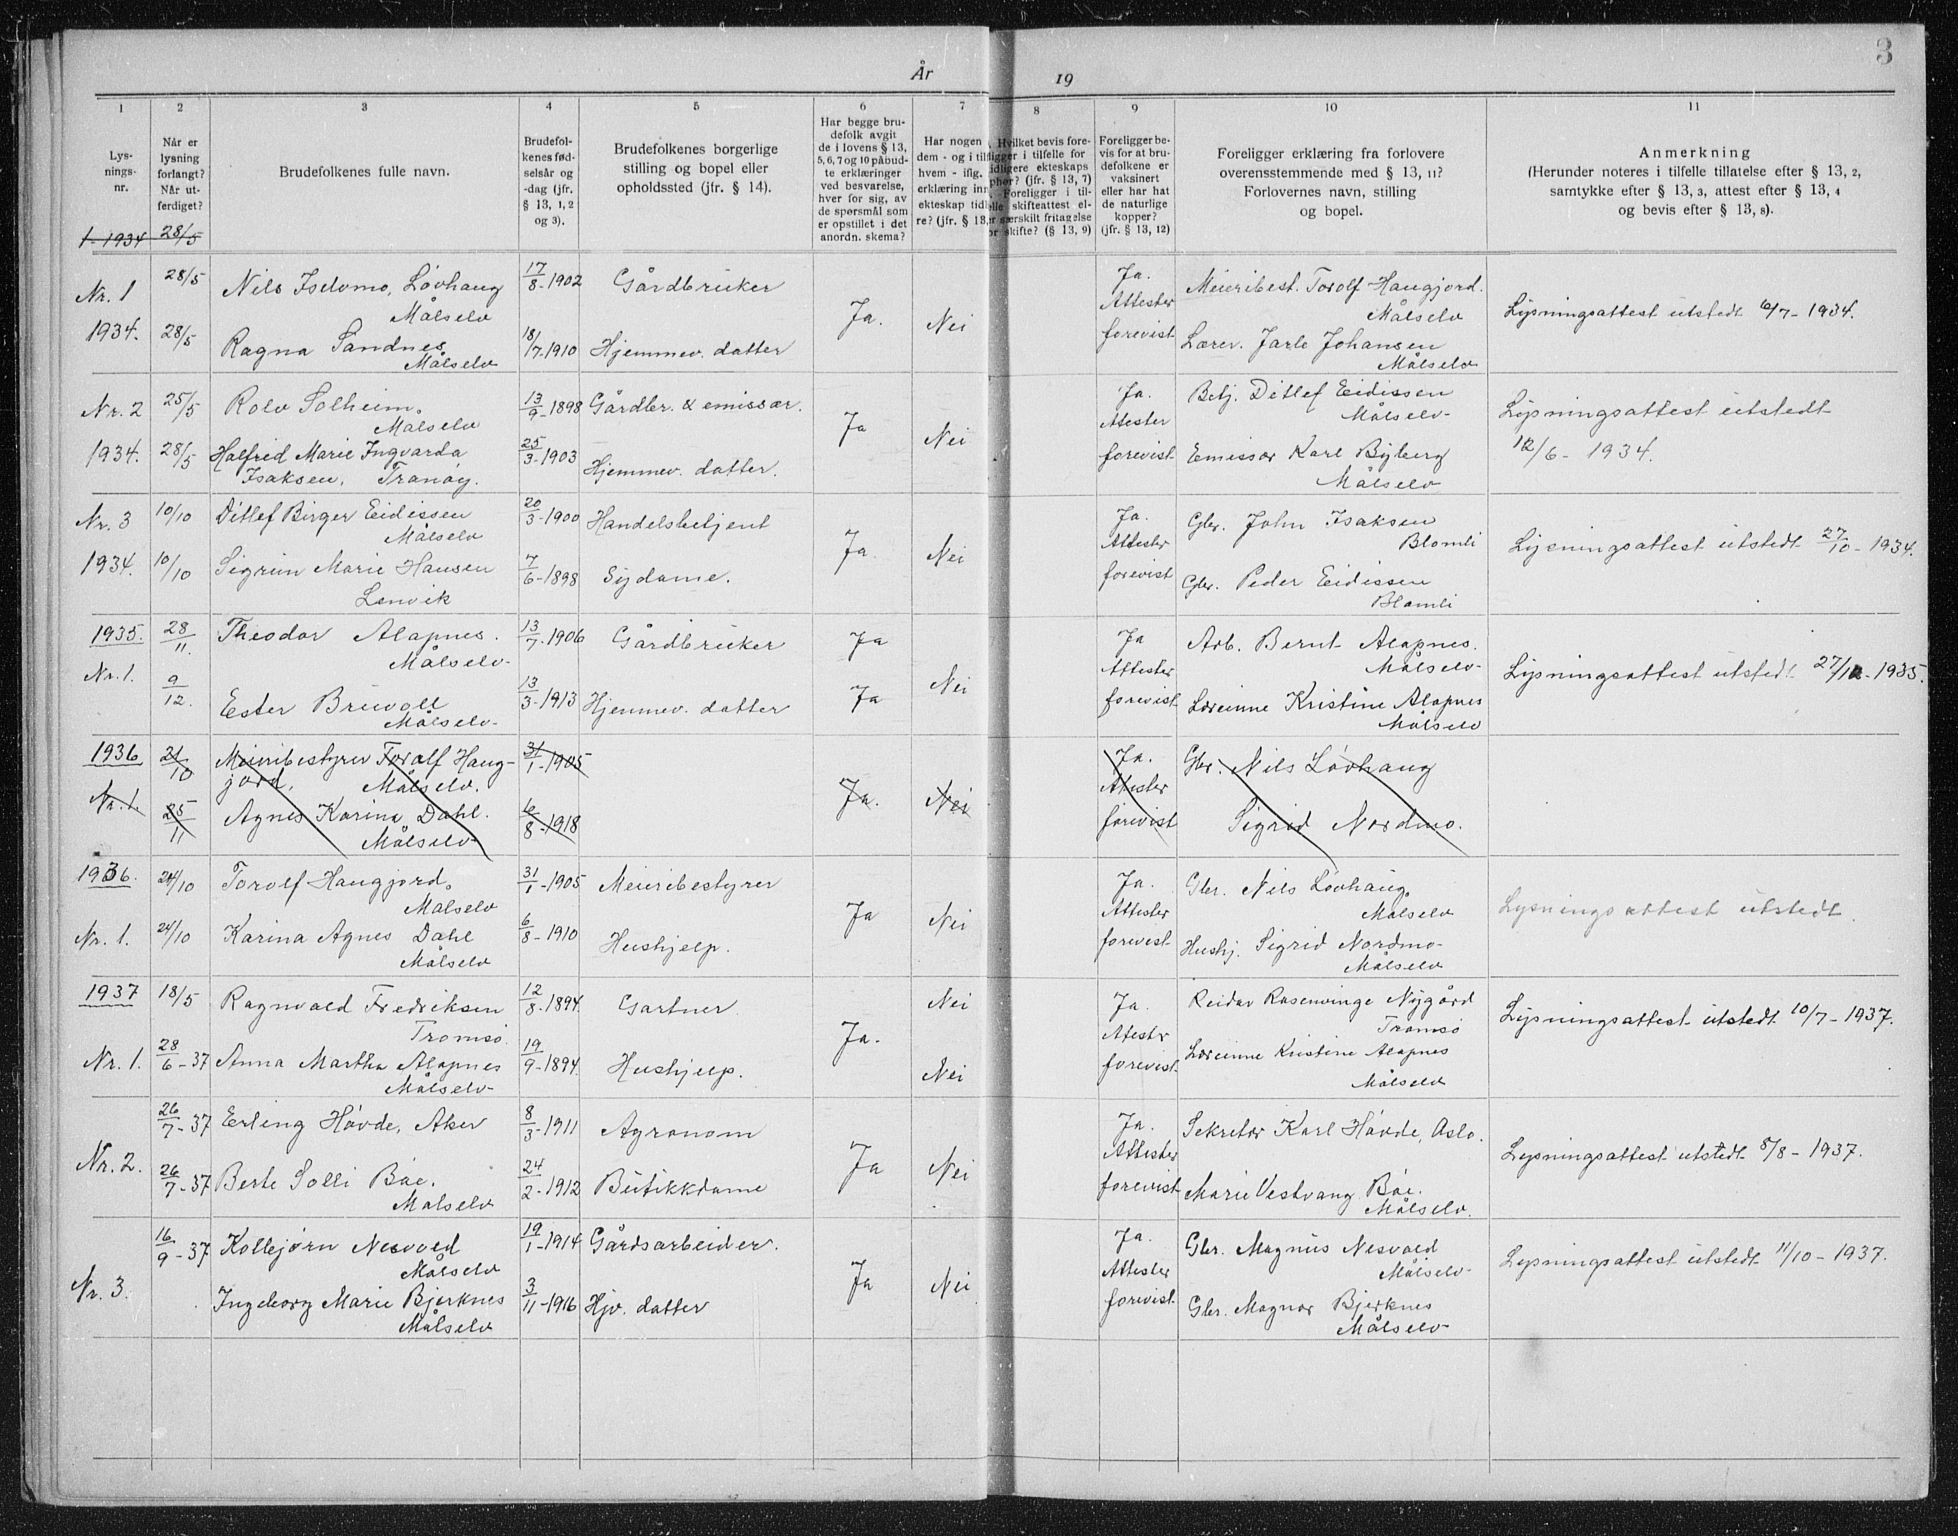 3
År 19
1 2 3 4 5 6 7 8 9 10 11
Lysningsnr.
Når er lysning forlangt? Når utferdiget?
Brudefolkenes fulle navn.
Brudefolkenes fødselsår og -dag (jfr. § 13, 1, 2 og 3).
Brudefolkenes borgerlige stilling og bopel eller opholdssted (jfr. § 14).
Har begge brudefolk avgitt de i lovens § 13, 5, 6, 7 og 10 påbudte erklæringer ved besvarelse, hver for sig, av de spørsmål som er opstillet i det anordn. skema?
Har nogen dem - og i tilf hvem - iflg. erklæring inn ekteskap tid re? (jfr. § 13,
Hvilket bevis foreligger i tilfelle for tidligere ekteskaps ophør? (jfr. § 13, 7) Foreligger i tilfelle skifteattest eller særskilt fritagelse for skifte? (§ 13, 9)
Foreligger bevis for at brudefolkene er vaksinert eller har hat de naturlige kopper? (jfr. § 13, 12)
Foreligger erklæring fra forlovere overensstemmende med § 13, 11? Forlovernes navn, stilling og bopel.
Anmerkning (Herunder noteres i tilfelle tillatelse efter § 13, 2, samtykke efter § 13, 3, attest efter § 13, 4 og bevis efter § 13, 8).
1-1934 28/5
Nr. 1 28/5 Nils Iselvmo, Løvhaug 17/8-1902 Gårdbruker Ja. Meieribest. Torolf Haugjord.
Målselv Ja. Nei Attester Målselv Lysningsattest utstedt 6/7-1934.
1934. 28/5 Ragna Sandnes 18/7-1910 Hjemmev. datter forevist Lærer. Jarle Johansen
Målselv Målselv
Nr. 2 25/5 Rolv Solheim. 13/9-1898 Gårdbr. & emissær. Ja. Betj. Ditlef Eidissen
Målselv Ja Nei Attester Målselv- Lysningsattest utstedt
1934. 28/5 Halfrid Marie Ingvarda 25/3-1903 Hjemmev. datter. forevist Emissær Karl Byberg 12/6-1934.
Isaksen, Tranøy. Målselv
Nr. 3 10/10 Ditlef Birger Eidissen 20/3-1900 Handelsbetjent Ja. Gbr. John Isaksen
Målselv Ja. Nei Attester Blomli Lysningsattest utstedt 27/10-1934.
1934. 10/10 Sigrun Marie Hansen 7/6-1898 Sydame. forevist Gbr. Peder Eidissen
Lenvik Blomli
1935. 28/11. Theodor Alapnes. 13/7-1906 Gårdbruker Ja Ja Arb. Bernt Alapnes.
Målselv- Attester Målselv- Lysningsattest utstedt 27/12-1935.
Nr. 1. 9/12. Ester Bruvoll 13/3-1913 Hjemmev. datter Ja Nei forevist Lærerinne Kristine Alapnes
Målselv- Målselv
1936 21/10 Meieribestyrer Torolf Haug- 31/1-1905 Ja. Gbr. Nils Løvhaug
jord, Målselv. Attester
Nr. 1. 25/11 Agnes Karina Dahl. 6/8-1918 Ja. Nei forevist Sigrid Nordmo.
Målselv
1936. 24/10 Torolf Haugjord. 31/1-1905 Meieribestyrer Ja. Gbr. Nils Løvhaug.
Målselv Ja Nei Attester Målselv Lysningsattest utstedt.
Nr. 1. 24/10 Karina Agnes Dahl 6/8-1910 Hushjelp. forevist Hushj. Sigrid Nordmo-
Målselv Målselv
1937 18/5 Ragnvald Fredriksen 12/8-1894. Gartner Nei Ja Reidar Rosenvinge Nygård
Tromsø. Ja. Attester Tromsø Lysningsattest utstedt 10/7-1937.
Nr. 1. 28/6-37 Anna Martha Alapnes 19/9-1894. Hushjelp. Nei forevist. Lærerinne Kristine Alapnes
Målselv- Målselv
26/7-37 Erling Høvde, Aker 8/3-1911 Agronom Ja. Sekretær Karl Høvde, Oslo.
Nr. 2. Ja Nei Attester Lysningsattest utstedt 5/8-1937.
26/7-37 Berte Solli Bøe. 24/2-1912 Butikkdame forevist Marie Vestvang Bøe.
Målselv Målselv.
16/9-37 Kolbjørn Nesvold 19/1-1914 Gårdsarbeider. Ja. Gbr. Magnus Nesvold
Målselv Attester Målselv- Lysningsattest utstedt 11/10-1937.
Nr. 3. Ingeborg Marie Bjerknes 3/11-1916 Hjv. datter Ja Nei forevist. Gbr. Magnar Bjerknes
Målselv Målselv-